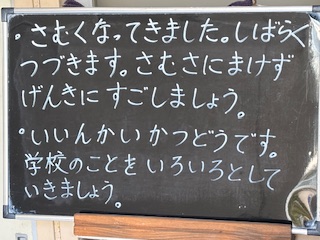 ・さむくなってきました。しばらく
つづきます。さむさにまけず
げんきに すごしましょう。
・いいんかいかつどうです。
学校のことを いろいろとして
いきましょう。